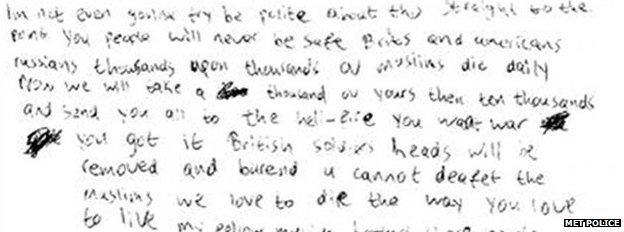 Im not even gonna try be polite about this straight to the
point you people will never be safe Brites and americans
russians thousands upon thousands ov muslims die daily
Now we will take a thousand ov yours then ten thousands
and send you all to the hell-fire you want war
you got it British soldiers heads will be
removed and burend u cannot deafet the
Muslims we love to die the way you love
to live my
MET POLICE